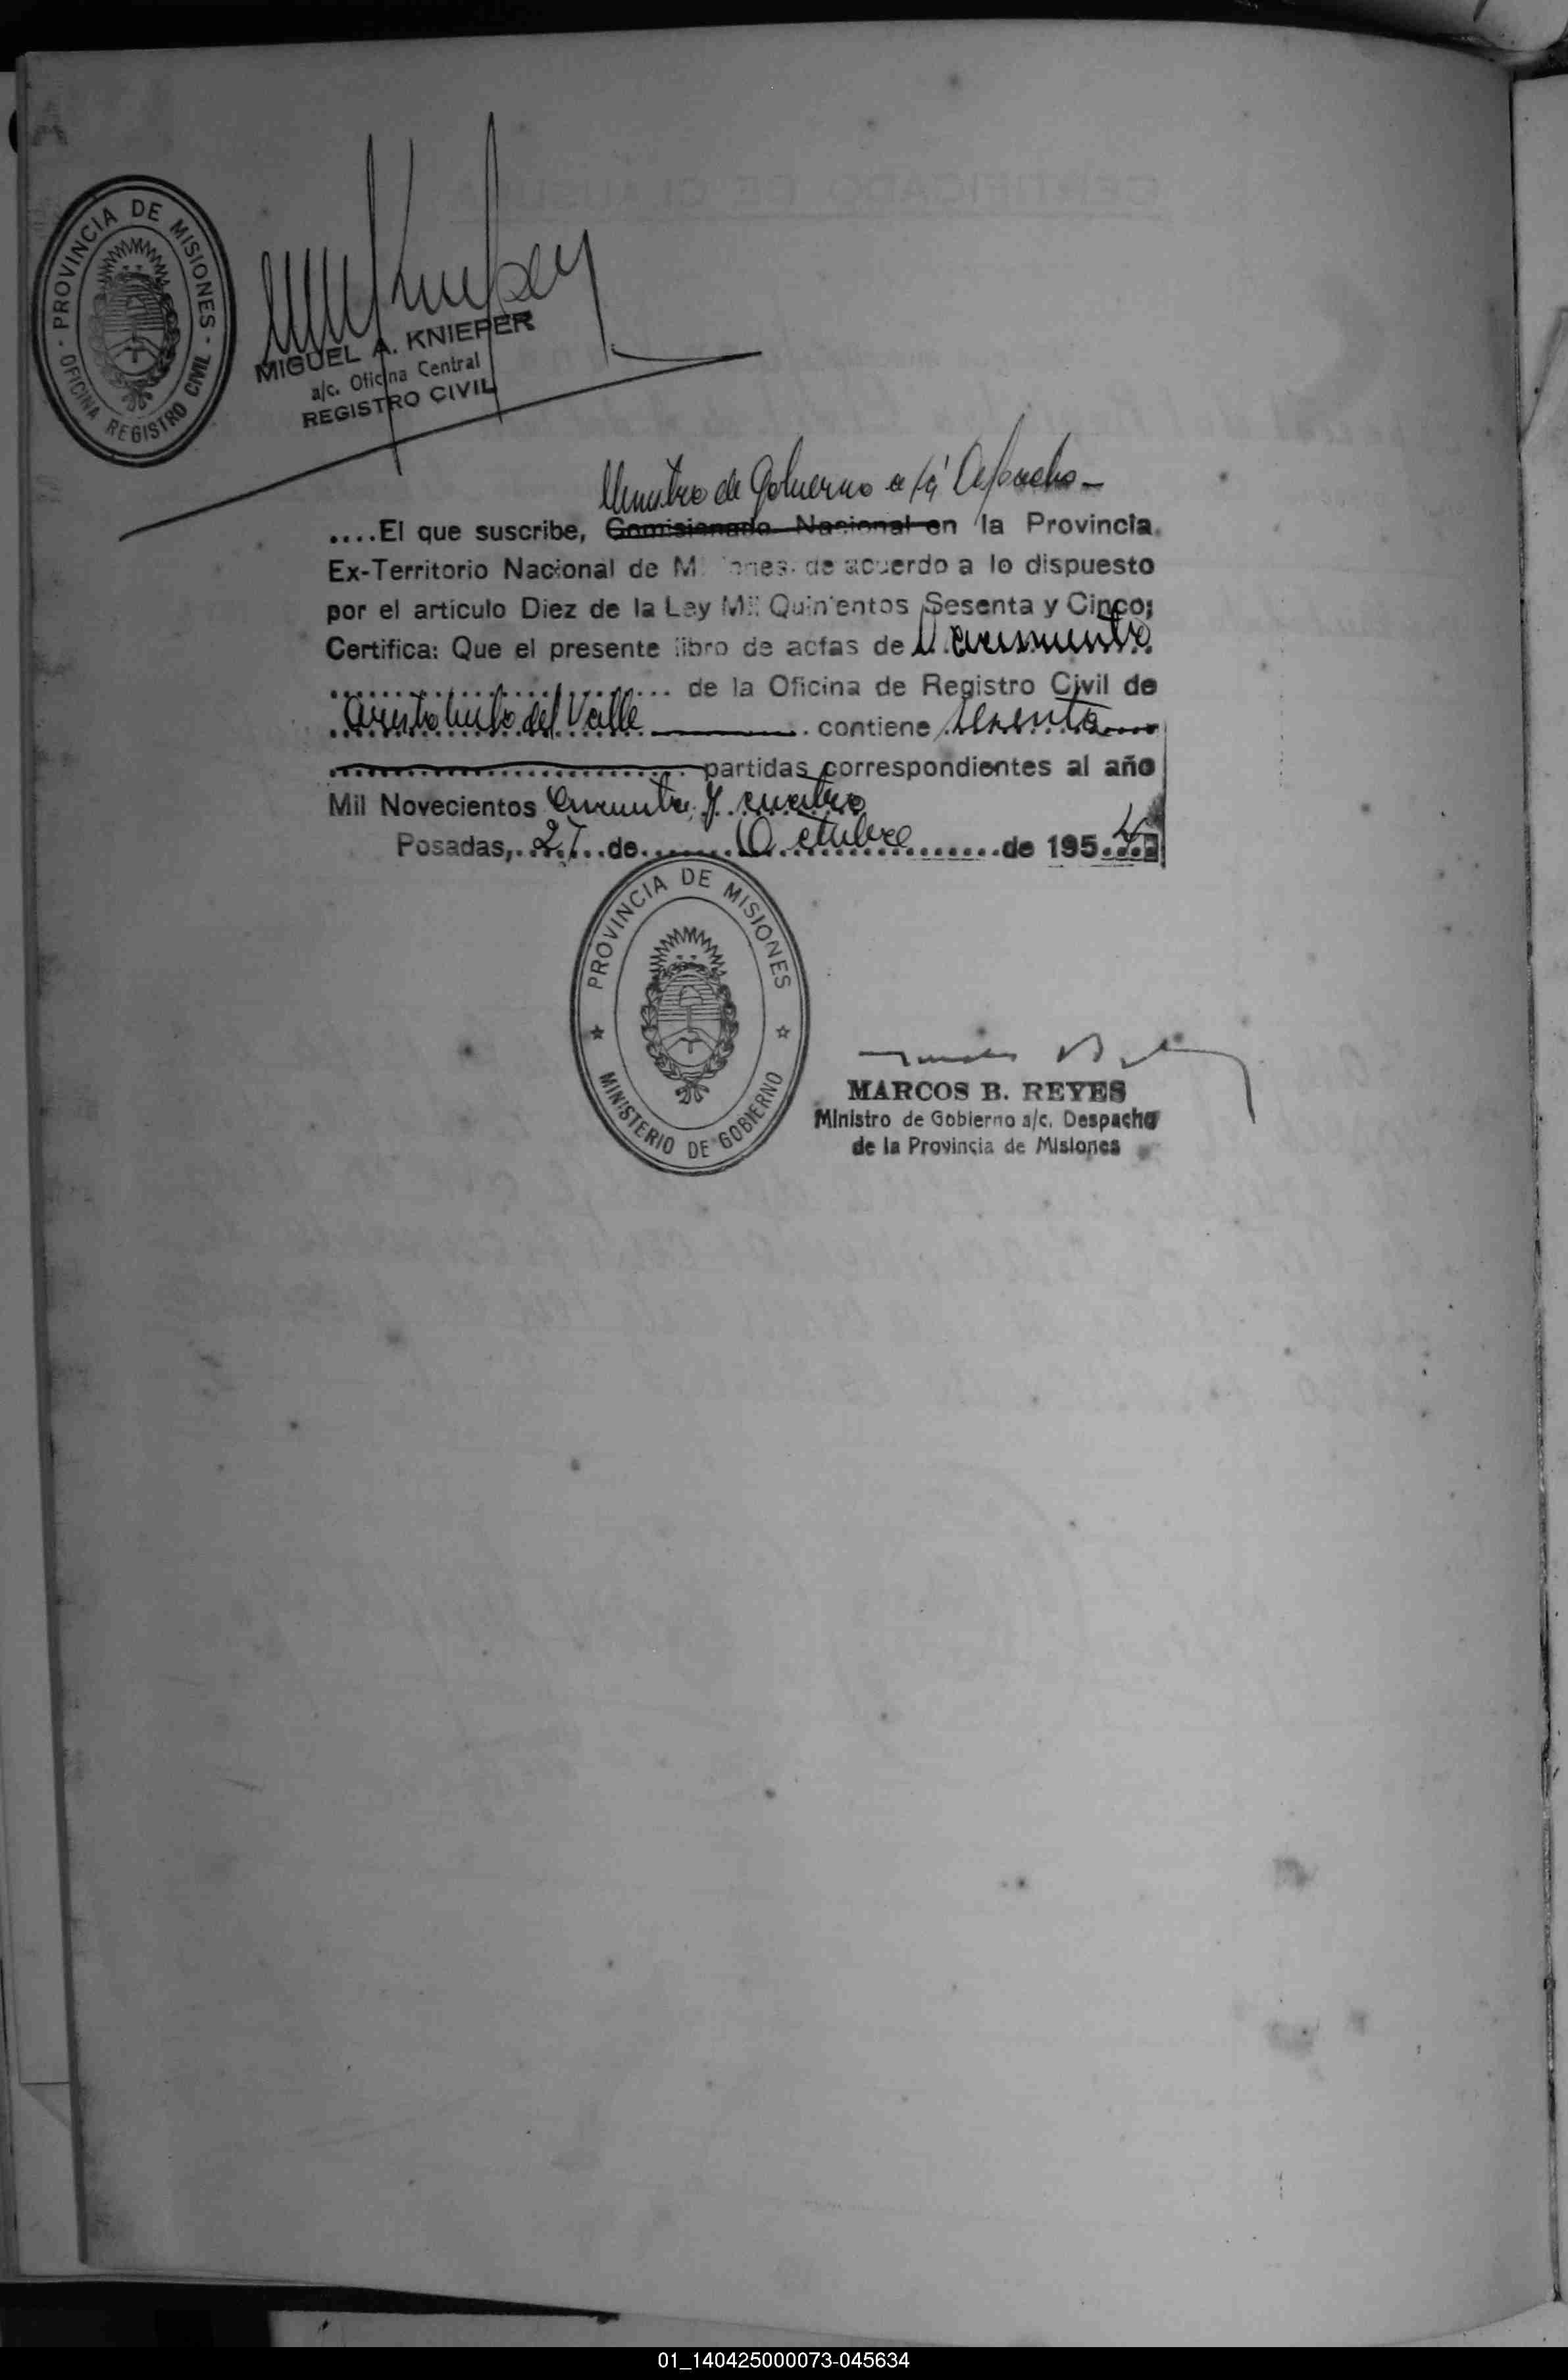 PROVINCIA DE MISIONES
OFICINA REGISTRO CIVIL
MIGUEL A. KNIEPER
a/c. Oficina Central
REGISTRO CIVIL
Ministro de Gobierno a/c Despacho -
....El que suscribe, Comisionado Nacional en la Provincia.
Ex-Territorio Nacional de Misiones. de acuerdo a lo dispuesto
por el artículo Diez de la Ley Mil Quinientos Sesenta y Cinco;
Certifica: Que el presente libro de actas de Nacimiento
de la Oficina de Registro Civil de
Aristobulo del Valle contiene sesenta
partidas correspondientes al año
Mil Novecientos Cincuenta y cuatro
Posadas, 27 de Octubre de 1954
PROVINCIA DE MISIONES
MINISTERIO DE GOBIERNO
MARCOS B. REYES
Ministro de Gobierno a/c. Despacho
de la Provincia de Misiones
01_140425000073-045634